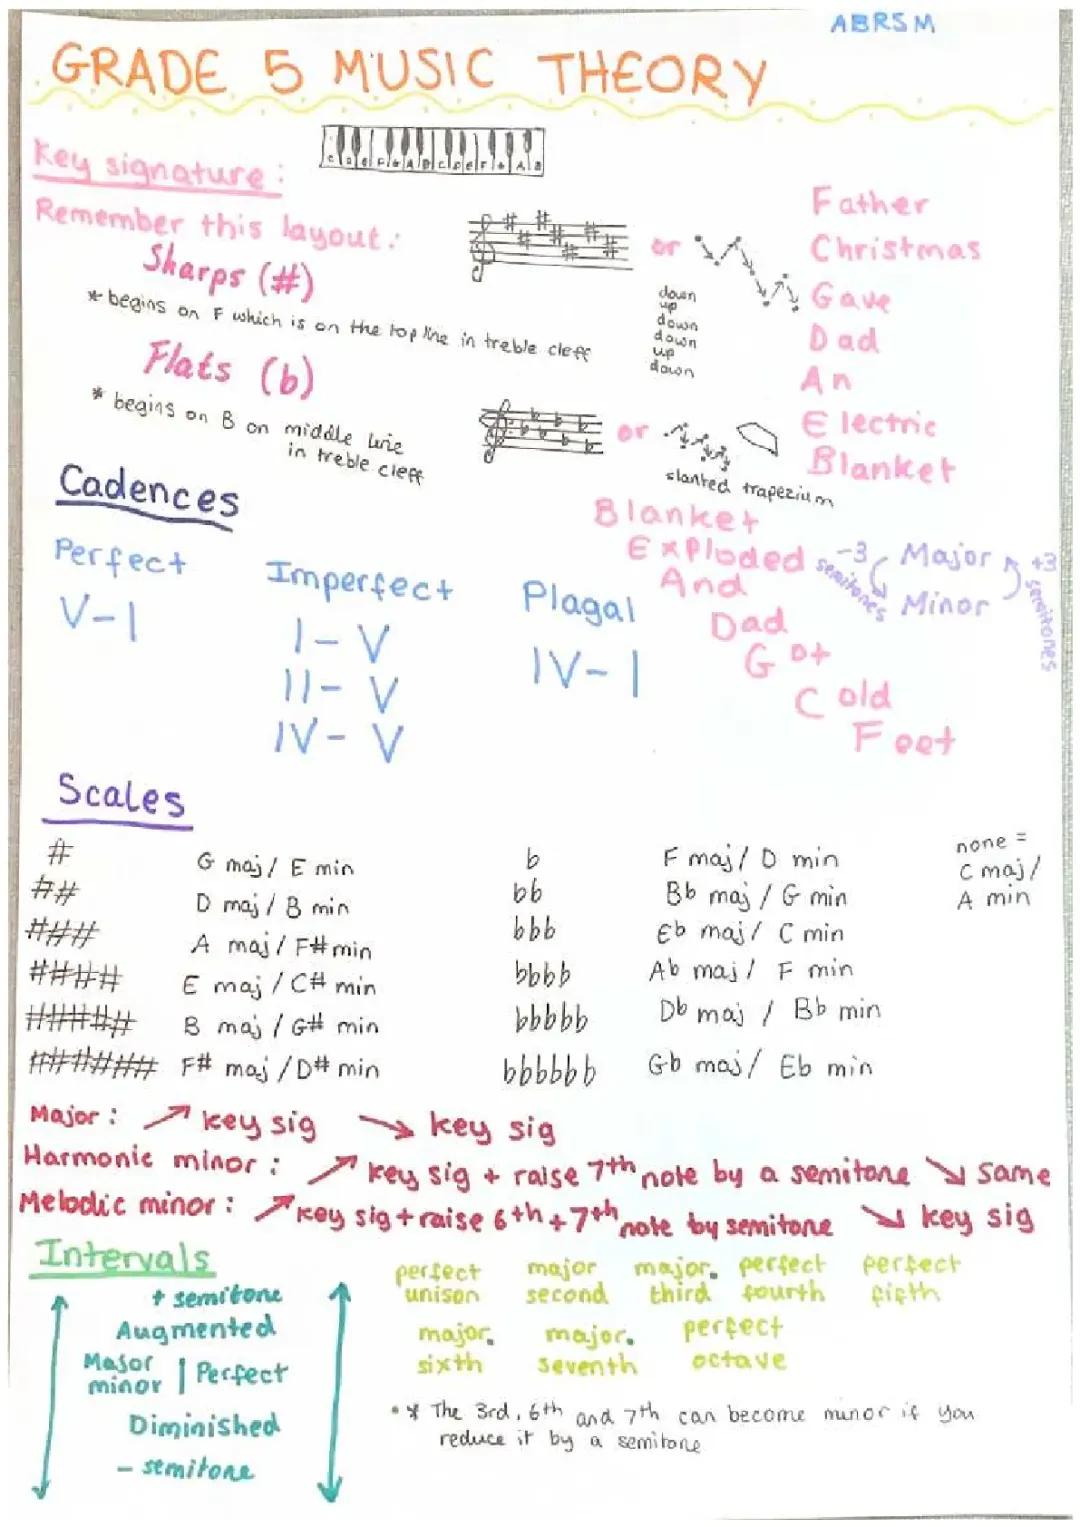 ABRSM
GRADE 5 MUSIC THEORY
Key signature:
C D E F G A B C D E F G A B
Remember this layout:
Sharps (#)
* begins on F which is on the top line in treble cleff
or
down
up
down
down
up
down
Father
Christmas
Gave
Dad
An
Electric
Blanket
Flats (b)
* begins on B on middle line
in treble cleff
or
slanted trapezium
Blanket
Exploded
And
Dad
Got
Cold
Feet
-3 semitones
Major
Minor
+3 semitones
Cadences
Perfect
V-I
Imperfect
I - V
II - V
IV - V
Plagal
IV - I
Scales
# G maj / E min
## D maj / B min
### A maj / F# min
#### E maj / C# min
##### B maj / G# min
###### F# maj / D# min
b F maj / D min
bb Bb maj / G min
bbb Eb maj / C min
bbbb Ab maj / F min
bbbbb Db maj / Bb min
bbbbbb Gb maj / Eb min
none =
C maj /
A min
Major: ↗ key sig ↘ key sig
Harmonic minor: ↗ key sig + raise 7th note by a semitone ↘ same
Melodic minor: ↗ key sig + raise 6th + 7th note by semitone ↘ key sig
Intervals
+ semitone
Augmented
Major
minor | Perfect
Diminished
- semitone
perfect unison
major second
major. third
perfect fourth
perfect fifth
major. sixth
major. seventh
perfect octave
* The 3rd, 6th and 7th can become minor if you
reduce it by a semitone